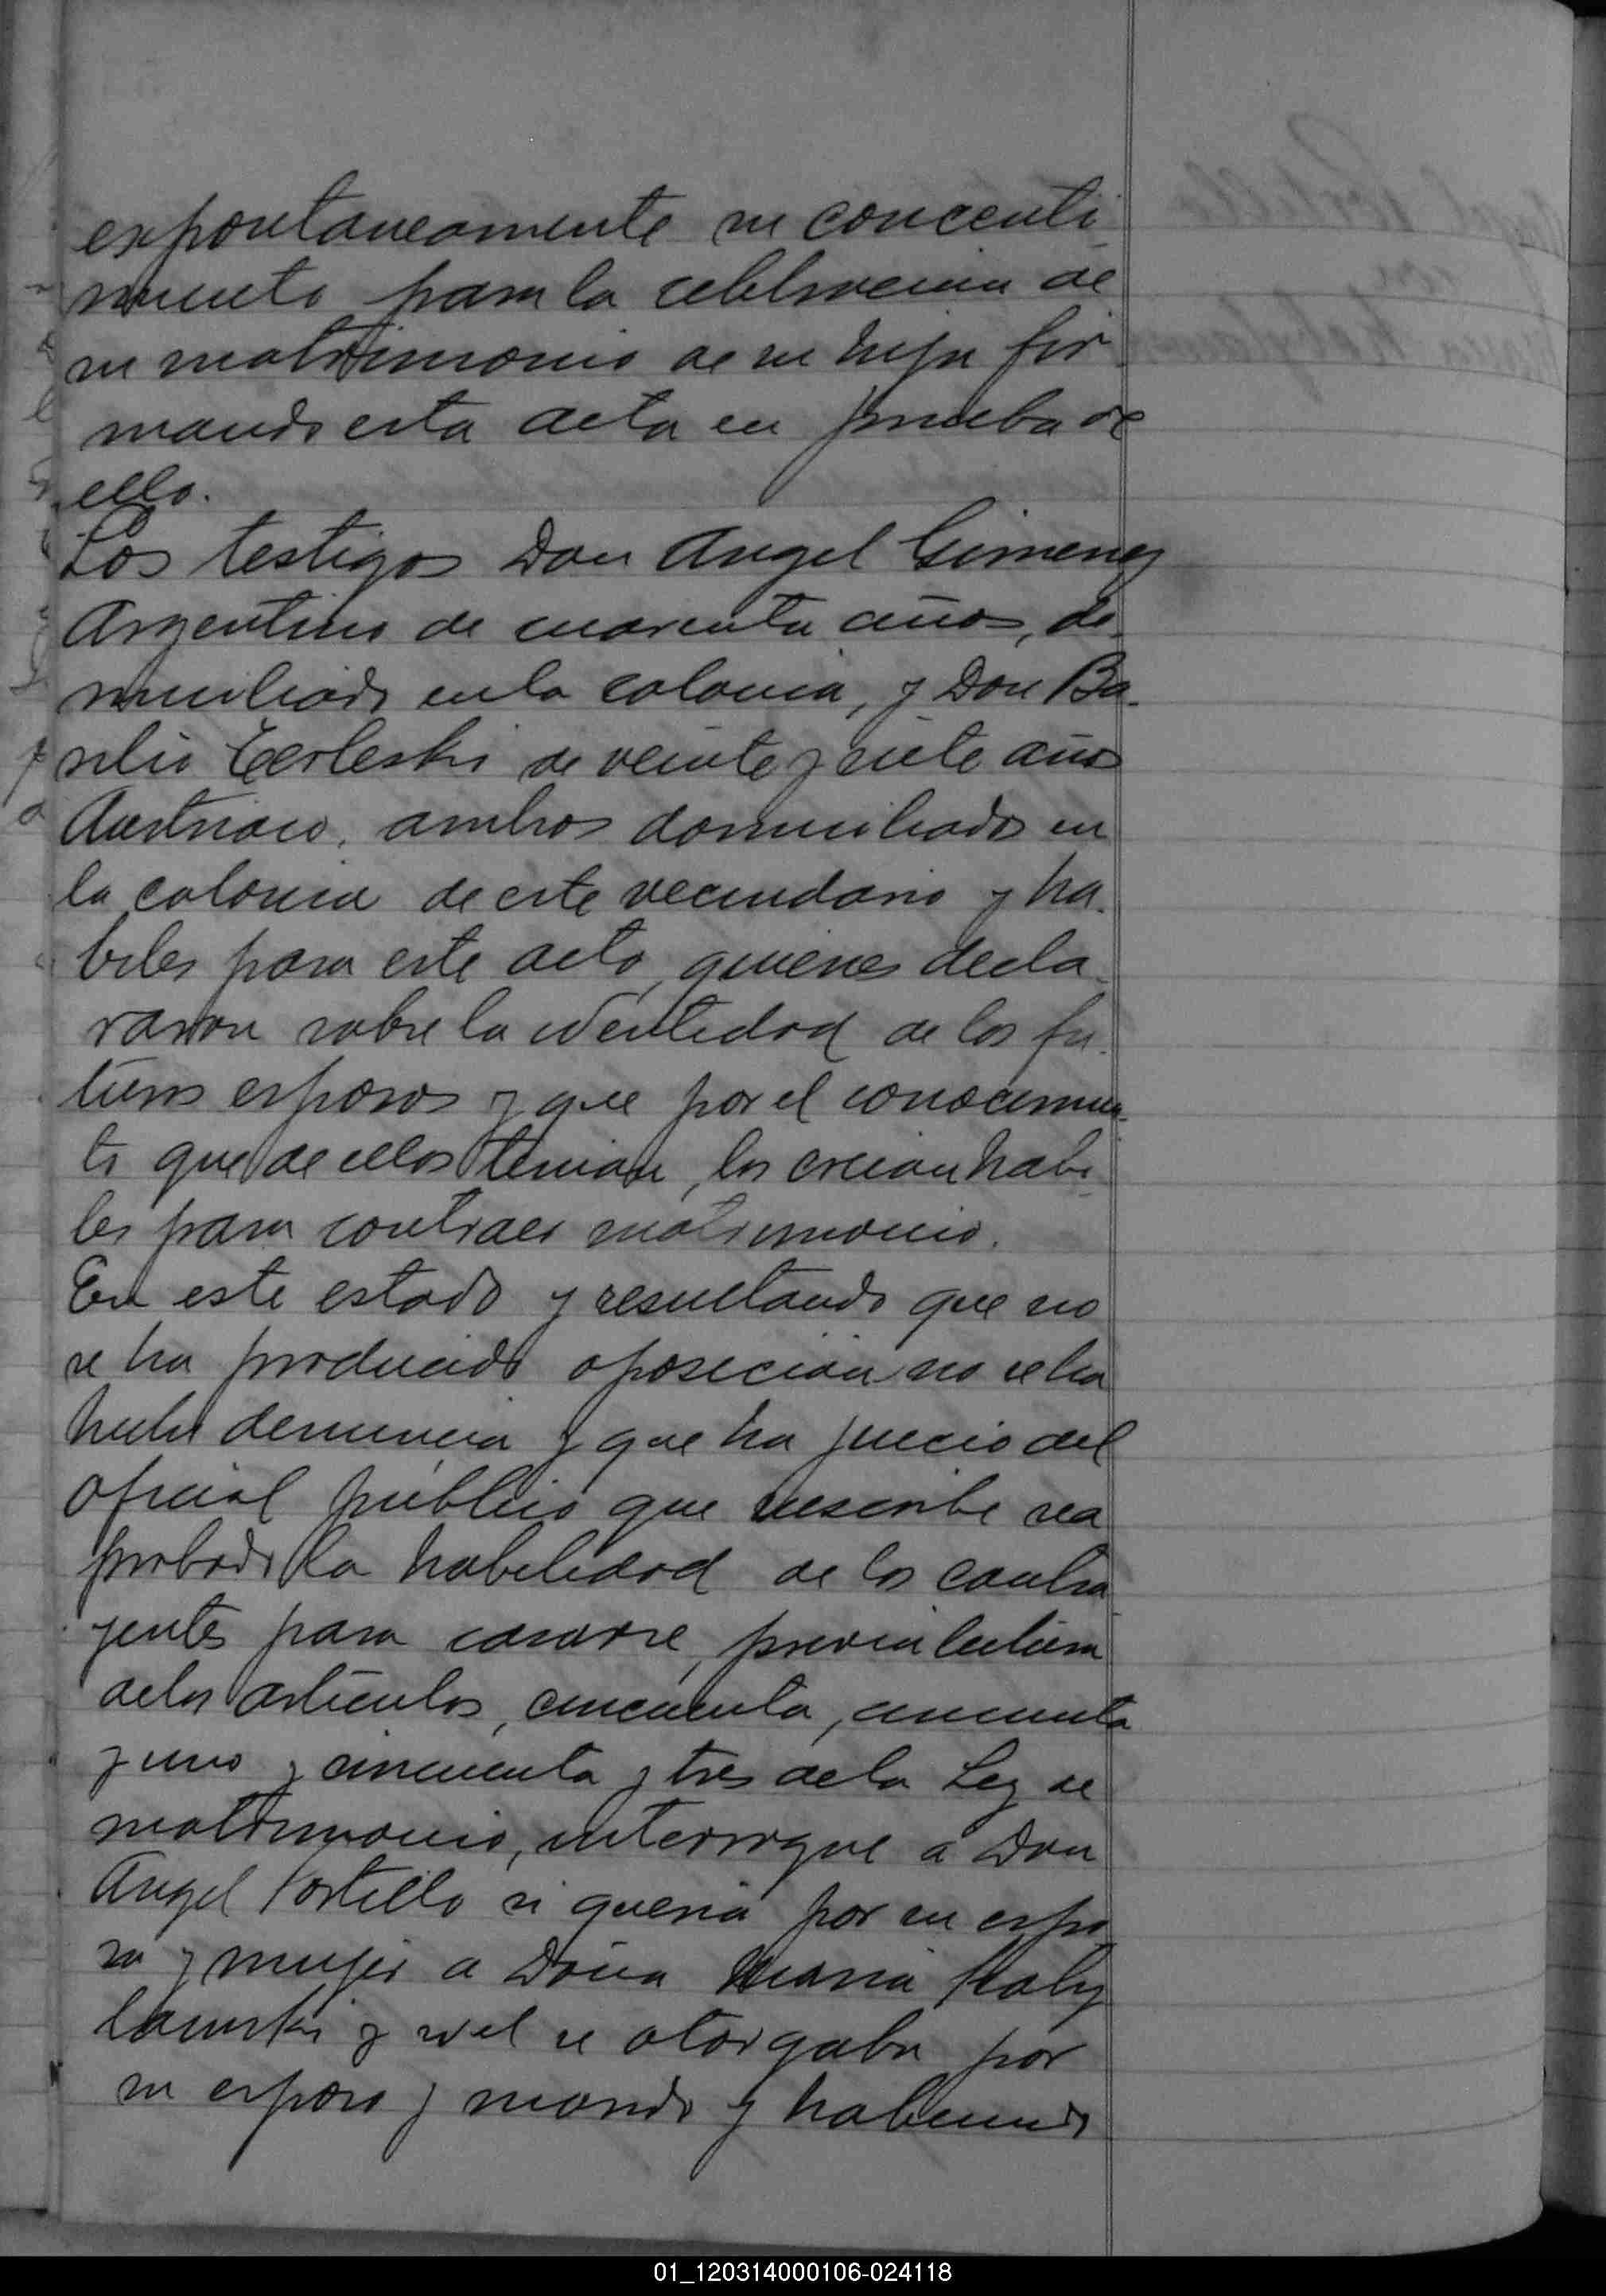 expontaneamente su concenti
miento para la celebracion de
su matrimonio de su hija fir
mando esta acta en prueba de
ello.
Los testigos Don Angel Gimenez
Argentino de cuarenta años, do
miciliado en la colonia, y Don Ba
silio Terleski de veinte y siete años
Austriaco, ambos domiciliados en
la colonia de este vecindario y ha
biles para este acto, quienes decla
raron sobre la identidad de los fu
turos esposos y que por el conocimien
to que de ellos tenian, los creian habi
les para contraer matrimonio.
En este estado y resultando que no
se ha producido oposicion no se ha
hecho denuncia y que ha juicio del
oficial público que suscribe sea
probado la habilidad de los contra
yentes para casarse, previa lectura
de los articulos, cincuenta, cincuenta
y uno y cincuenta y tres de la Ley de
matrimonio, interrogue a Don
Angel Portillo si queria por su espo
sa y mujer a Doña Maria
y si el se otorgaba por
su esposo y marido y habiendo
01_120314000106-024118